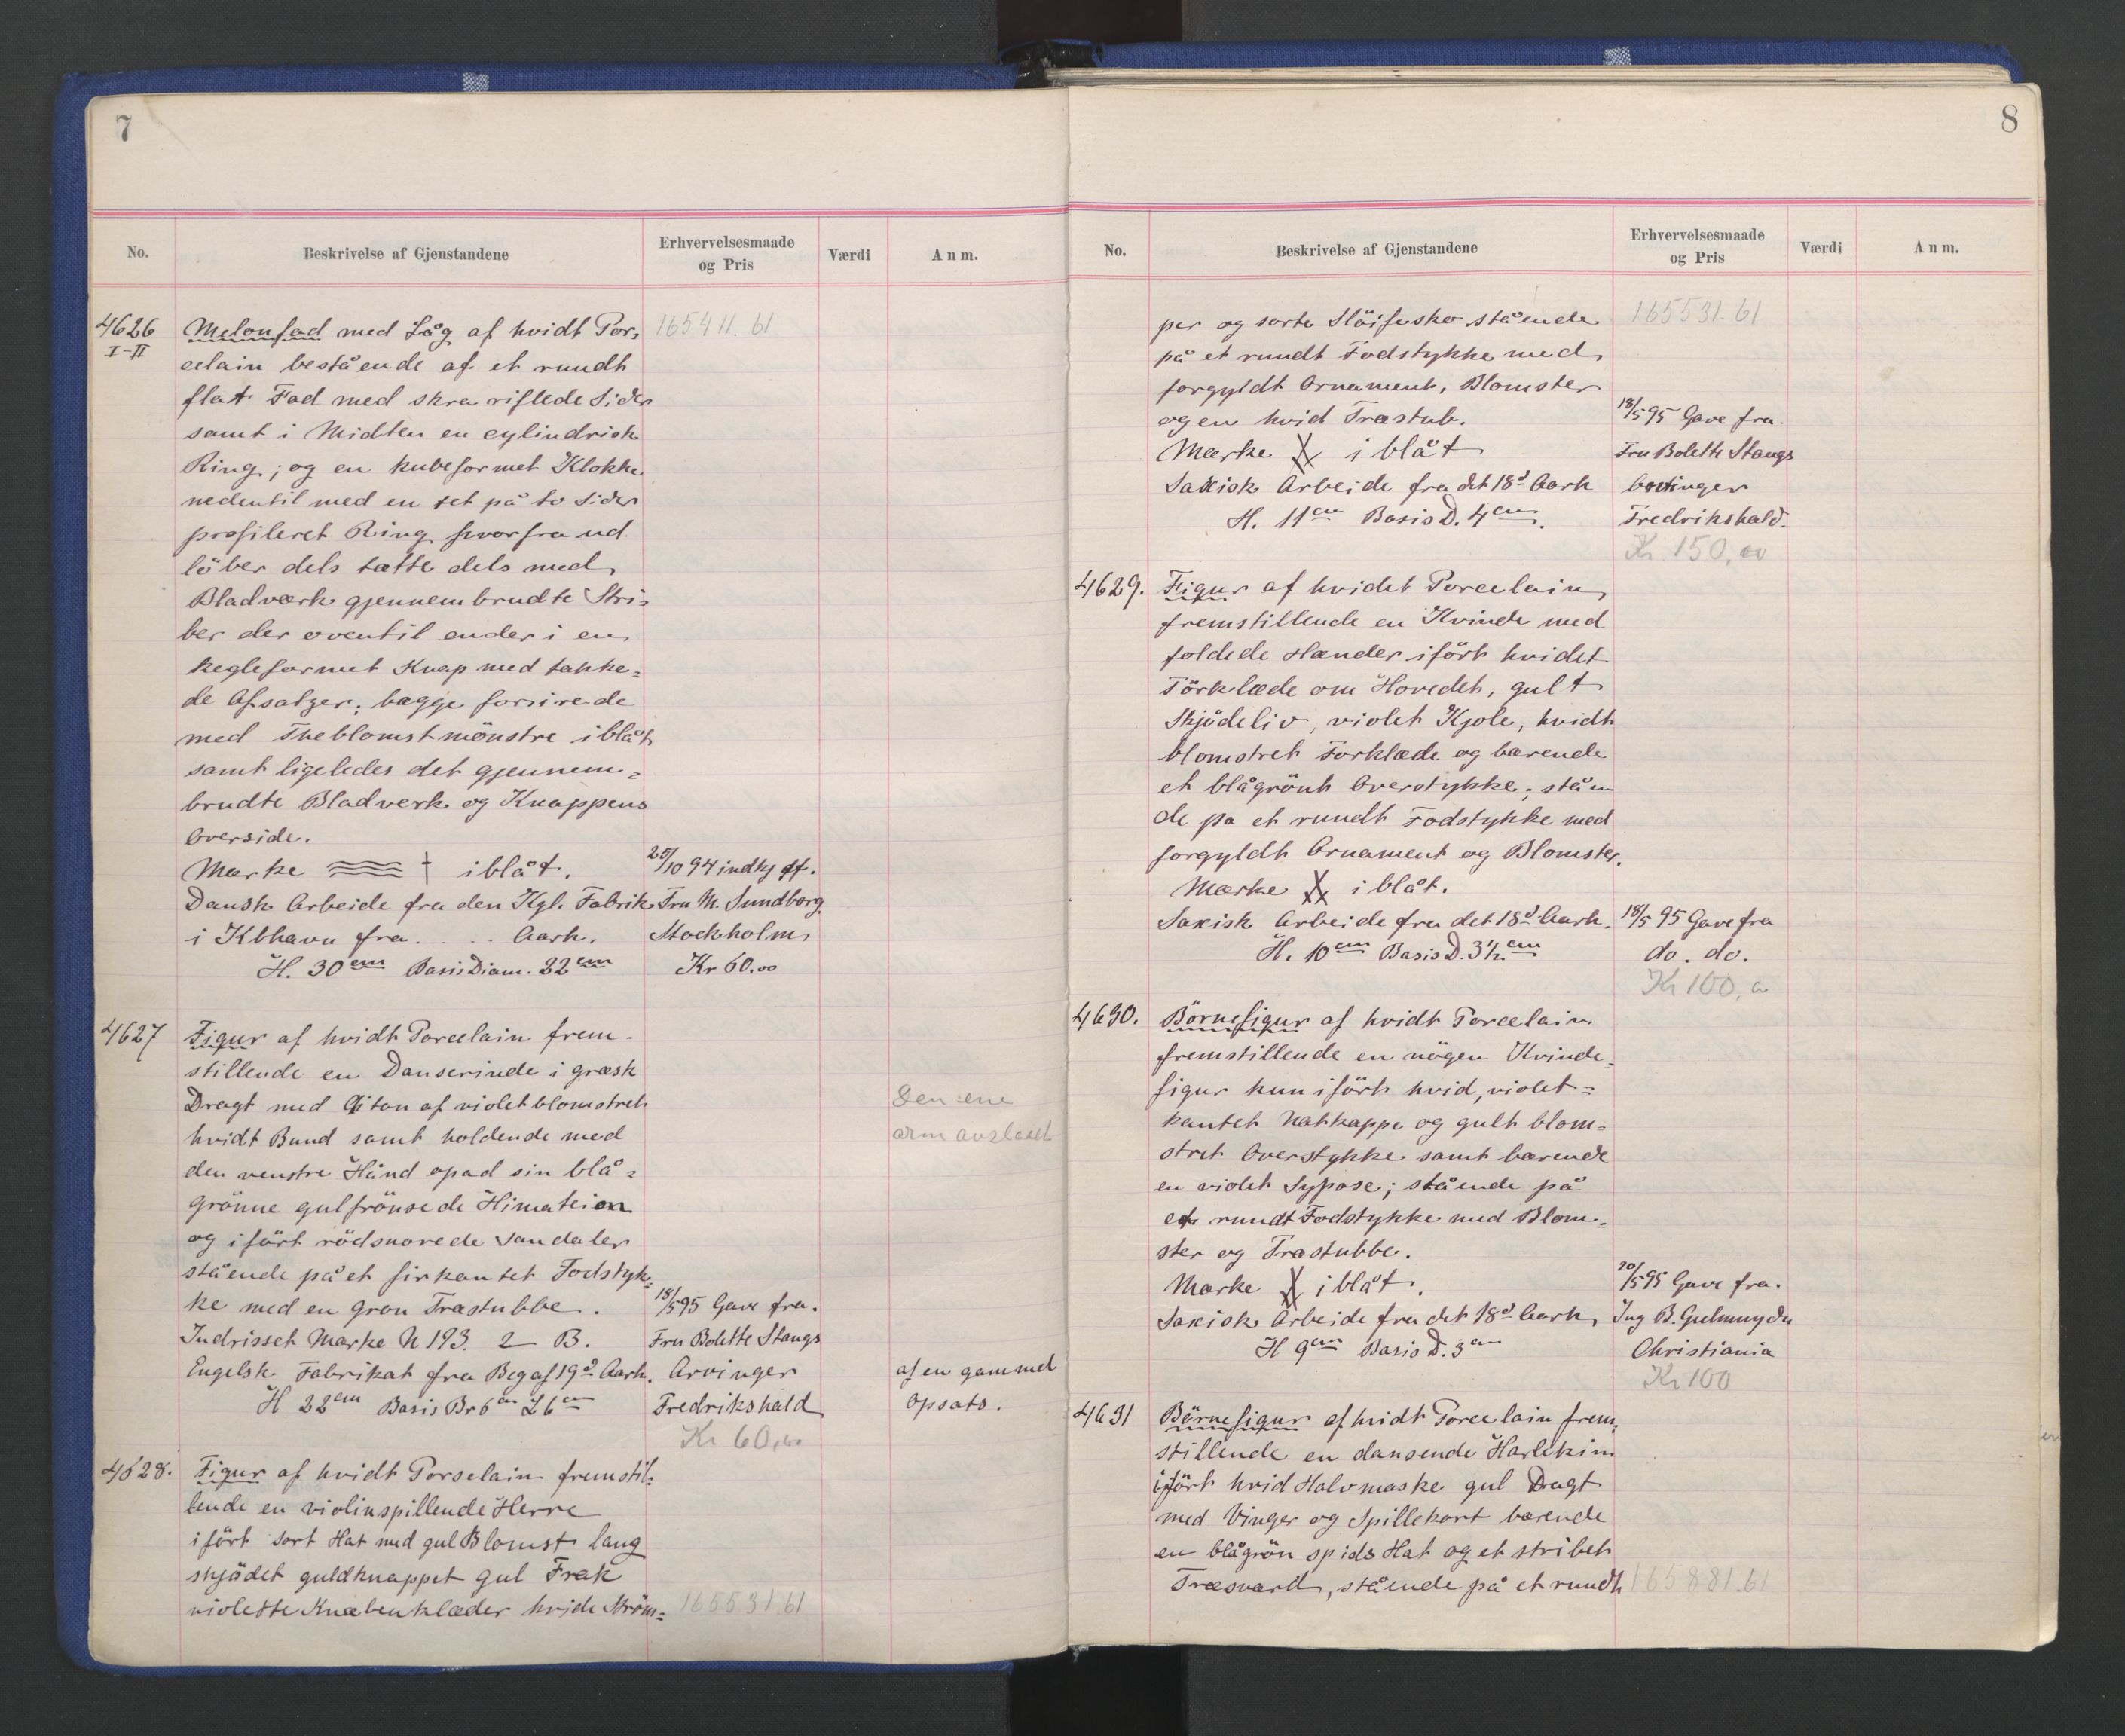 7
No.
Beskrivelse af Gjenstandene
Erhvervelsesmaade
og Pris
Værdi
Anm.
4626
I-II
165411.61
Melonfad med Låg af hvidt Por=
celain bestående af et rundt
flat Fad med skra riflede Sider
samt i Midten en cylindrisk
Ring; og en kubeformet Klokke
nedentil med en tet på to Sider
profileret Ring hvorfra ud
löber dels tætte dels med
Bladværk gjennembrudte Stri=
ber der oventil ender i en
kegleformet Knap med takke=
de Afsatzer; bægge forsirede
med Theblomstmönstre i blåt
samt ligeledes det gjennem=
brudte Bladverk og Knappens
Overside.
Mærke † i blåt.
25/10 94 indkj af.
Dansk Arbeide fra den Kgl. Fabrik
Fru M. Sundborg.
i Kbhavn fra . . . . Aarh.
Stockholm,
H. 30cm Basis Diam. 22cm
Kr 60.00
4627
Figur af hvidt Porcelain frem-
stillende en Danserinde i græsk
Dragt med Qiton af violet blomstret
hvidt Bund samt holdende med
den venstre Hånd opad sin blå=
grönne gulfrönsede Himateion
og iført rödsnorede Sandaler
stående på et firkantet Fodstyk=
ke med en grøn Træstubbe.
Indrisset Mærke N 193. 2 B.
Engelsk Fabrikat fra Beg af 19d Aarh.
H 22cm Basis Br 6cm L 6cm
18/5 95 Gave fra.
Fru Bolette Stangs
Arvinger
Fredrikshald
Kr 60,00
Den ene
arm avslaatt
af en gammel
Opsats.
4628.
Figur af hvidt Porselain fremstil=
lende en violinspillende Herre
iført sort Hat med gul Blomst lang
skjödet guldknappet gul Frak
violette Knæbenklæder hvide Ström=
165531.61
8
No.
Beskrivelse af Gjenstandene
Erhvervelsesmaade
og Pris
Værdi
Anm.
165531.61
per og sorte Slöifesko stående
på et rundt Fodstykke med
forgyldt Ornament, Blomster
og en hvid Træstub.
Mærke i blåt
Saxisk Arbeide fra det 18d Aarh
H. 11cm Basis D. 4cm.
18/5 95 Gave fra.
Fru Bolette Stangs
Arvinger
Fredrikshald.
Kr 150,00
4629.
Figur af hvidet Porcelain,
fremstillende en Kvinde med
foldede Hænder iført hvidet
Törklæde om Hovedet, gult
Skjödeliv, violet Kjole, hvidt
blomstret Forklæde og bærende
et blågrönt Overstykke; ståen
de pa et rundt Fodstykke med
forgyldt Ornament og Blomster.
Mærke i blåt.
Saxisk Arbeide fra det 18d Aarh.
H. 10cm Basis D. 3½cm
18/5 95 Gave fra
do. do.
Kr 100,00
4630.
Börnefigur af hvidt Porcelain
fremstillende en nögen Kvinde=
figur kun iført hvid, violet=
kantet Natkappe og gult blom=
stret Overstykke samt bærende
en violet Sypose; stående på
et rundt Fodstykke med Blom=
ster og Træstubbe.
Mærke i blåt.
Saxisk Arbeide fra det 18d Aarh,
H 9cm Basis D. 3cm
20/5 95 Gave fra.
Ing B.
Christiania
Kr 100
4631
Börnefigur af hvidt Porcelain frem=
stillende en dansende Harlekin
iført hvid Halvmaske gul Dragt
med Vinger og Spillekort bærende
en blågrön spids Hat og et stribet
Træsværd, stående på et rundt
165881.61